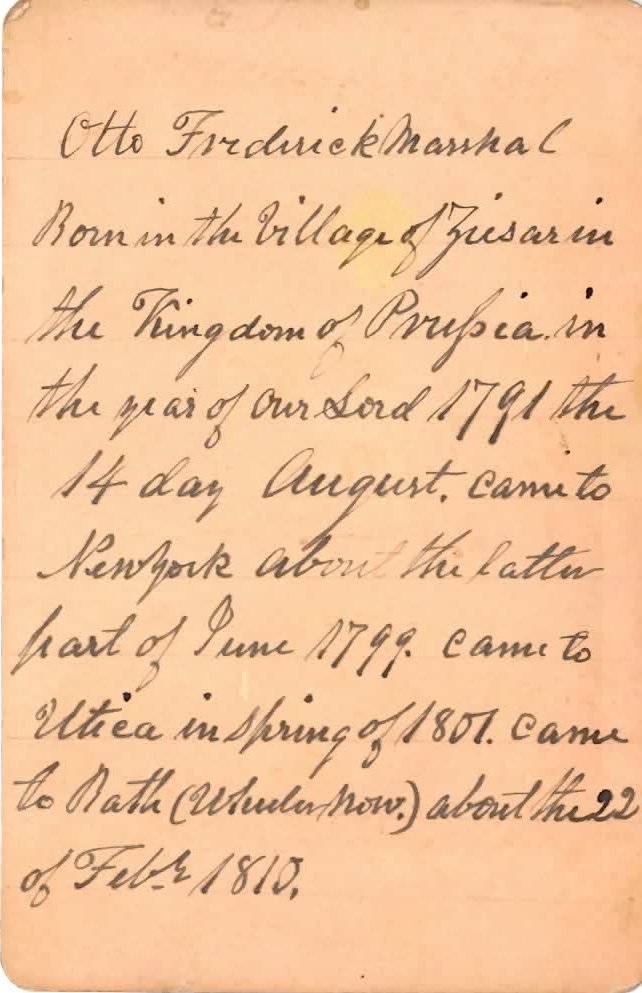 Otto Frederick Marshal
Born in the Village of Ziesar in
the Kingdom of Prussia. in
the year of our Lord 1791 the
14 day August. came to
New York about the latter
part of June 1799. came to
Utica in spring of 1801. came
to Bath (Wheeler now.) about the 22
of Feb.r 1810.